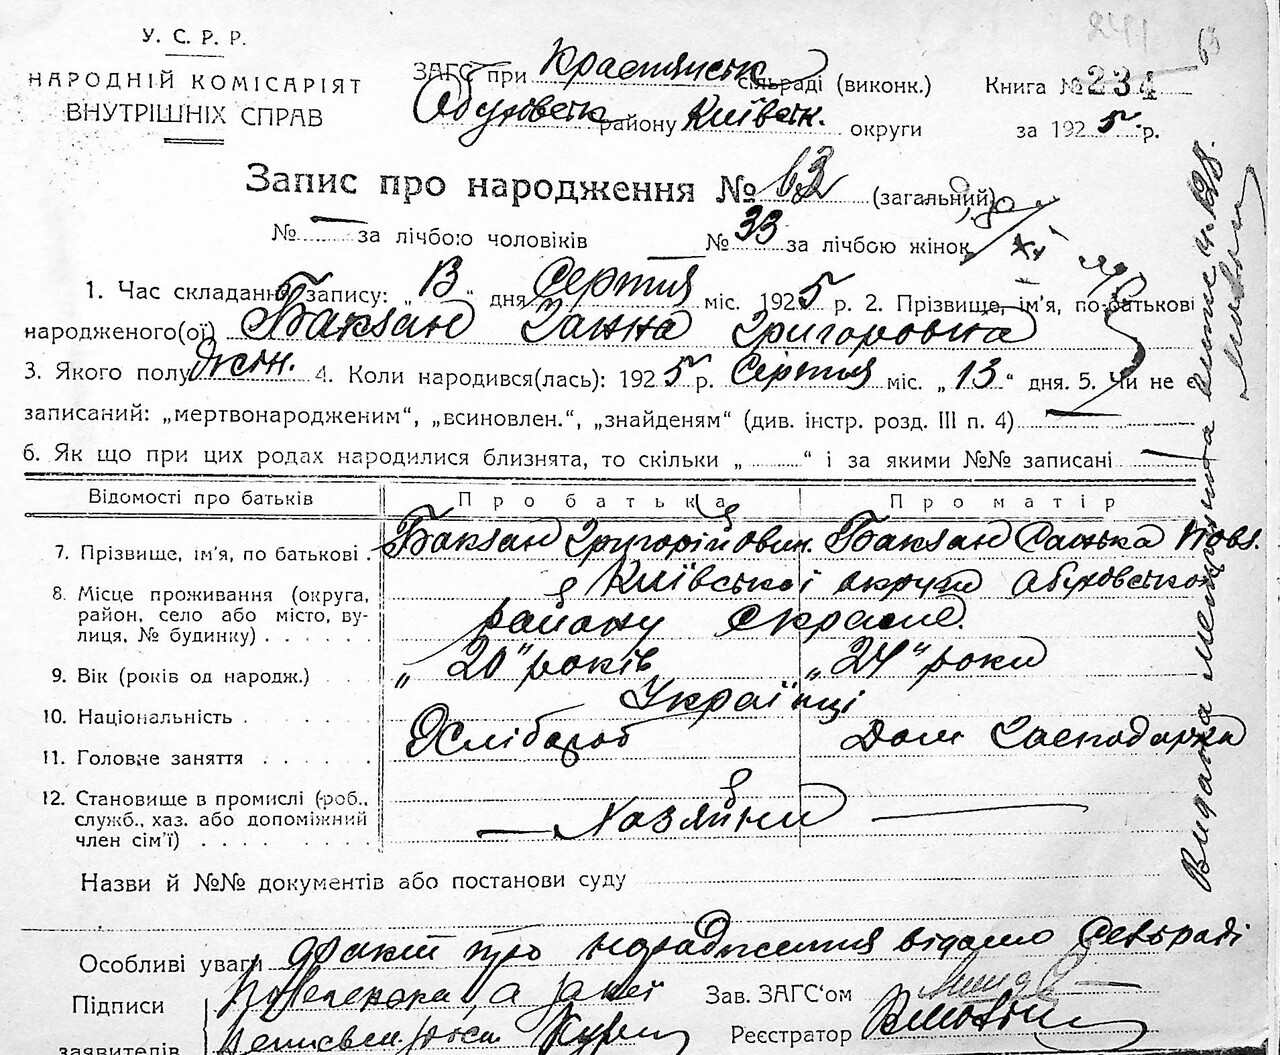 У. С. Р. Р.
НАРОДНІЙ КОМІСАРІЯТ
ВНУТРІШНІХ СПРАВ
ЗАГС при Краснянськ сільраді (виконк.)
Обухівськ району Київськ. округи
Книга № 234
за 1925 р.
Запис про народження № 62 (загальний)
№ — за лічбою чоловіків № 33 за лічбою жінок
1. Час складання запису: „13“ дня Серпня міс. 1925 р. 2. Прізвище, ім'я, по-батькові
народженого(ої) Баклан Ганна Григоровна
3. Якого полу жін. 4. Коли народився(лась): 1925 р. Серпня міс. „13“ дня. 5. Чи не є
записаний: „мертвонародженим“, „всиновлен.“, „знайденям“ (див. інстр. розд. III п. 4) —
6. Як що при цих родах народилися близнята, то скільки „ “ і за якими №№ записані —
Відомості про батьків Про батька Про матір
7. Прізвище, ім'я, по батькові . Баклан Григорій Баклан
8. Місце проживання (округа, район, село або місто, вулиця, № будинку) Київської округи Обухівсько
району с Красне.
9. Вік (років од народж.) „20“ років „24“ роки
10. Національність Українці
11. Головне заняття Хлібороб Дом Господарка
12. Становище в промислі (роб., служб., хаз. або допоміжний член сім'ї) — Хазяїни —
Назви й №№ документів або постанови суду
Особливі уваги Факт про народження відомо Сельраді
Підписи
заявителів
Зав. ЗАГС'ом
Реєстратор
Видана метрика